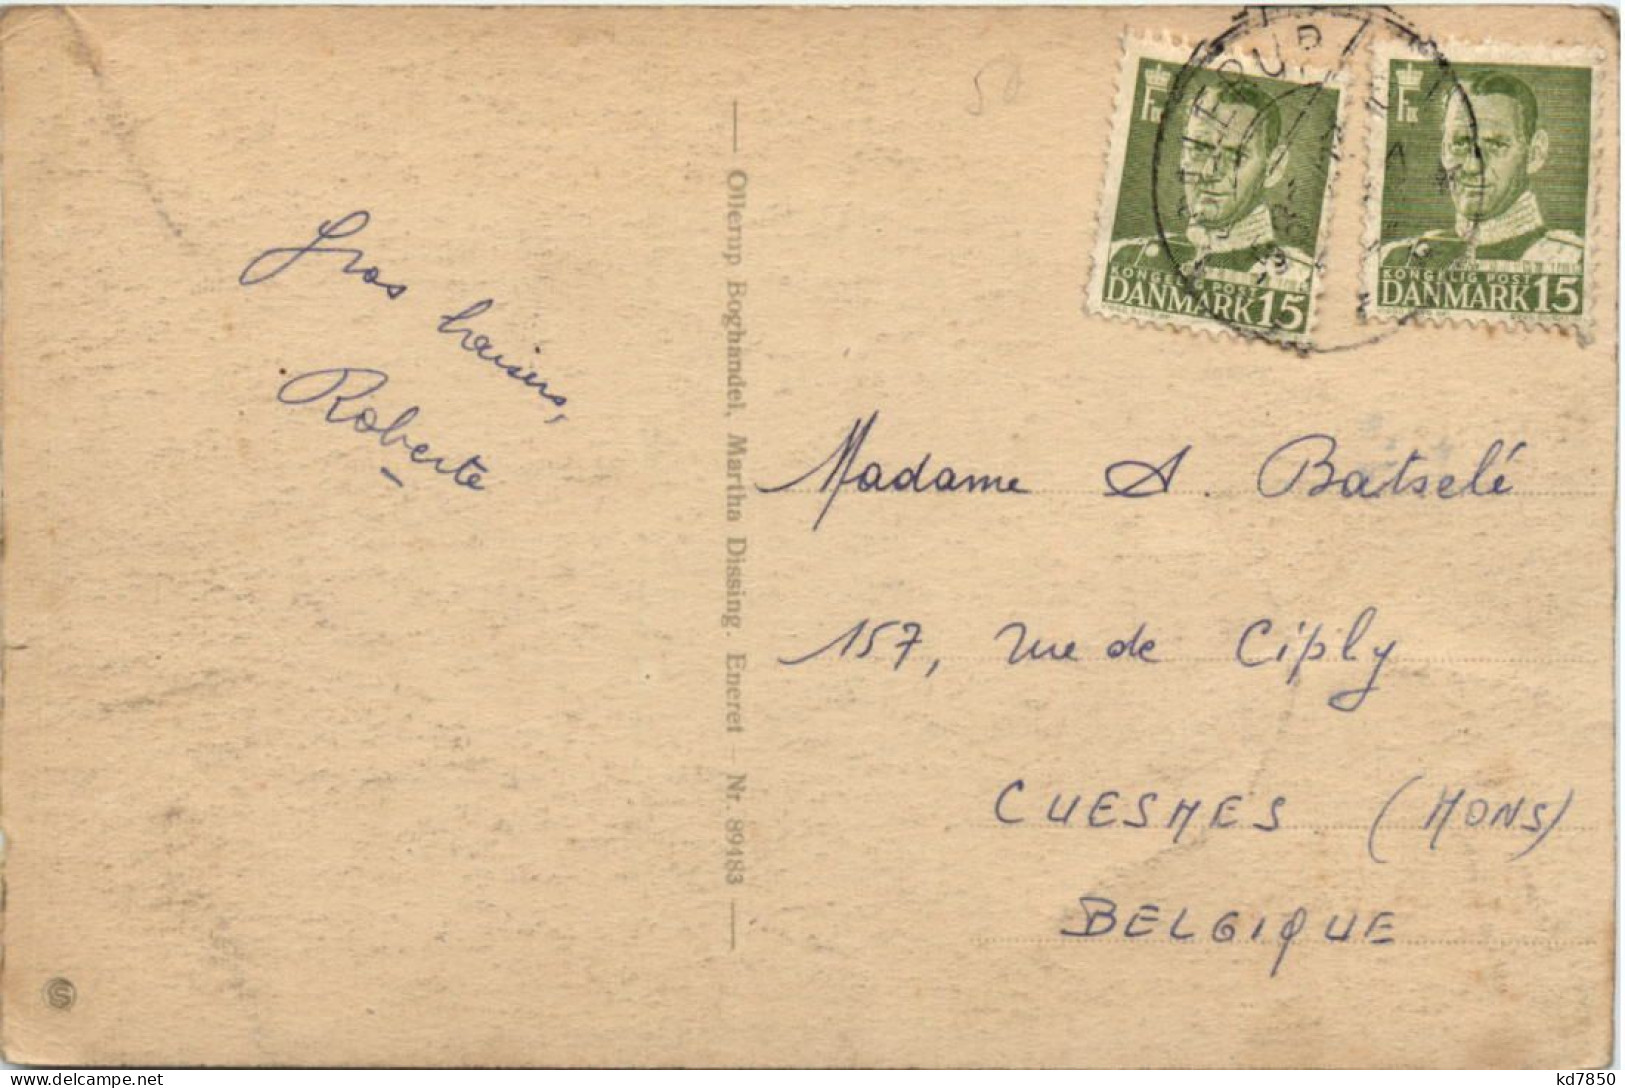 50
Gros baisers,
Roberte
Ollerup Boghandel, Martha Dissing. Eneret — Nr. 89483
OLLERUP
KONGELIG POST
DANMARK 15
KONGELIG POST
DANMARK 15
Madame A. Batselé
157, rue de Ciply
CUESMES (MONS)
BELGIQUE
S
kd7850